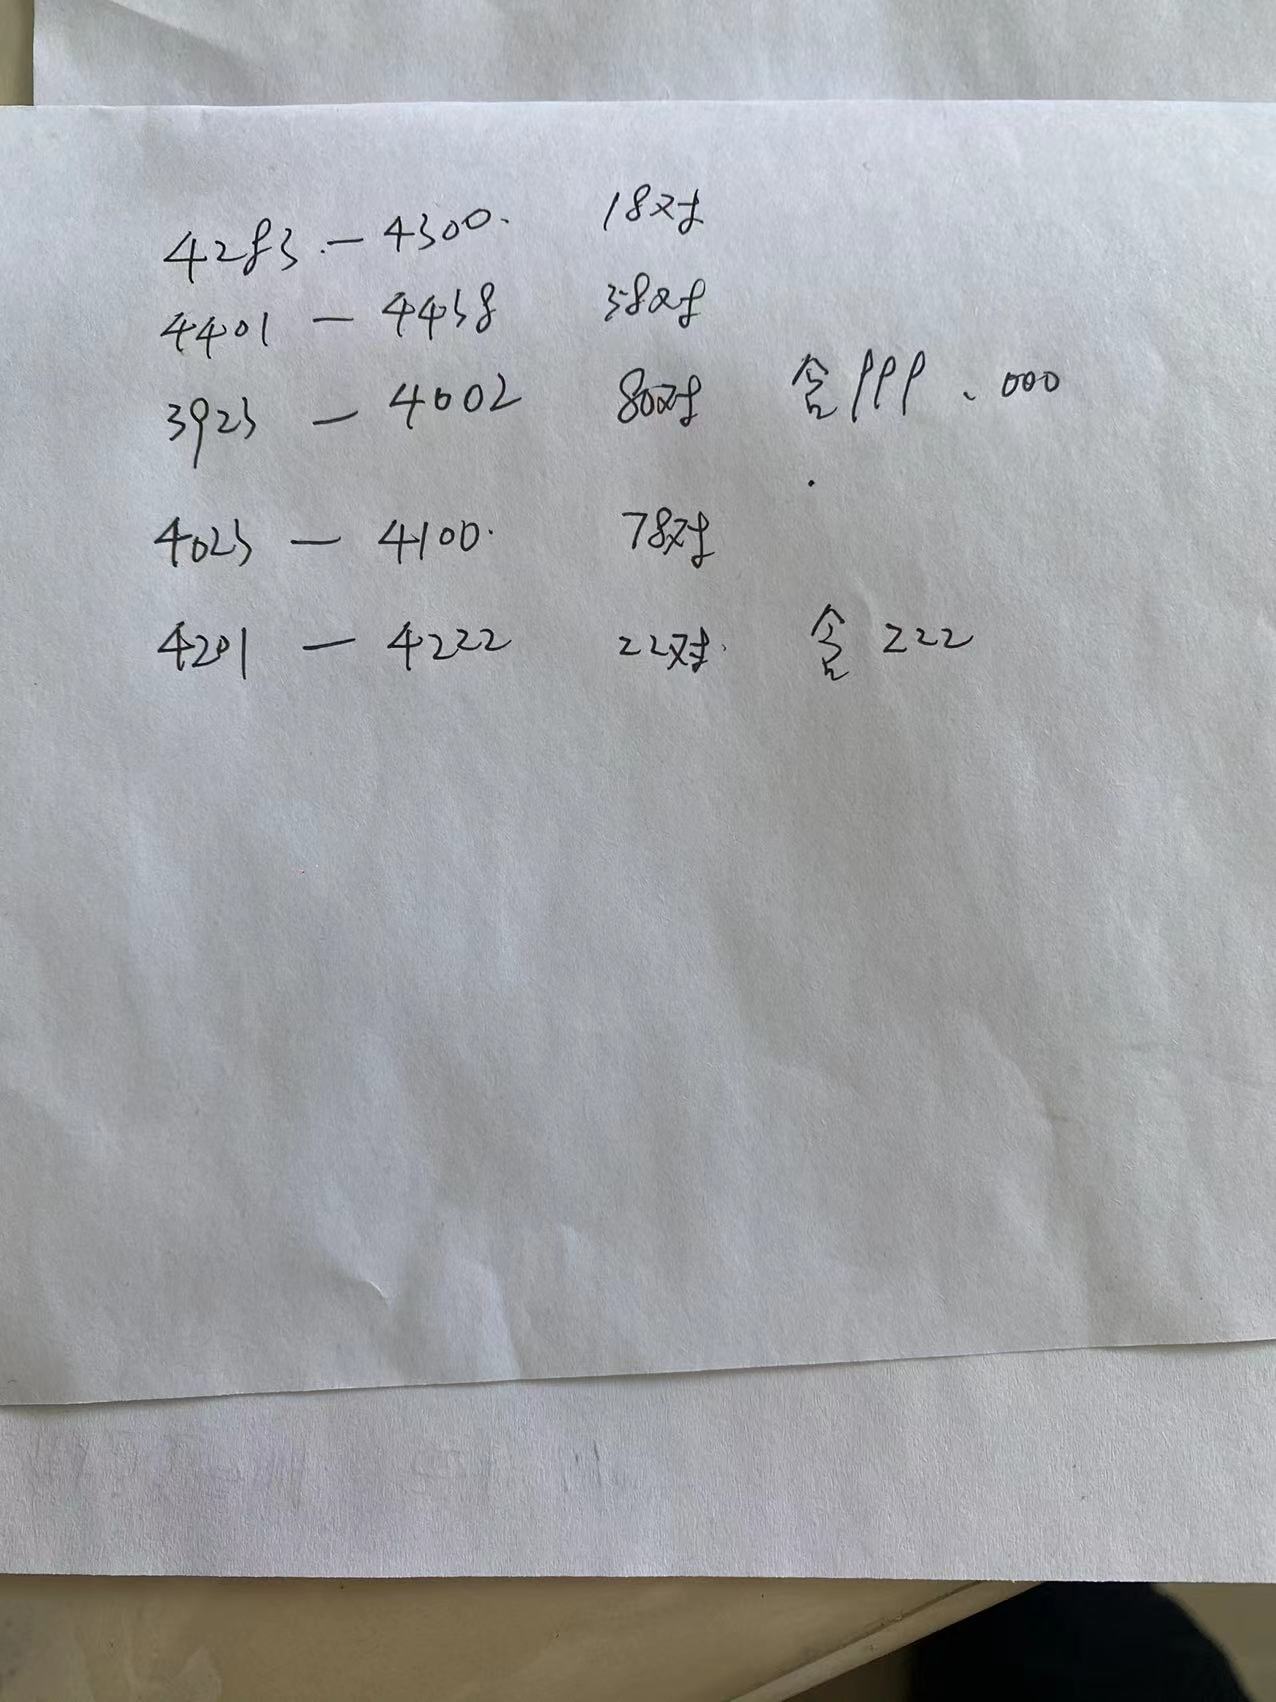 4283 — 4300. 18对
4401 — 4438 38对
3923 — 4002 80对 含999、000
4023 — 4100. 78对
4201 — 4222 22对. 含222